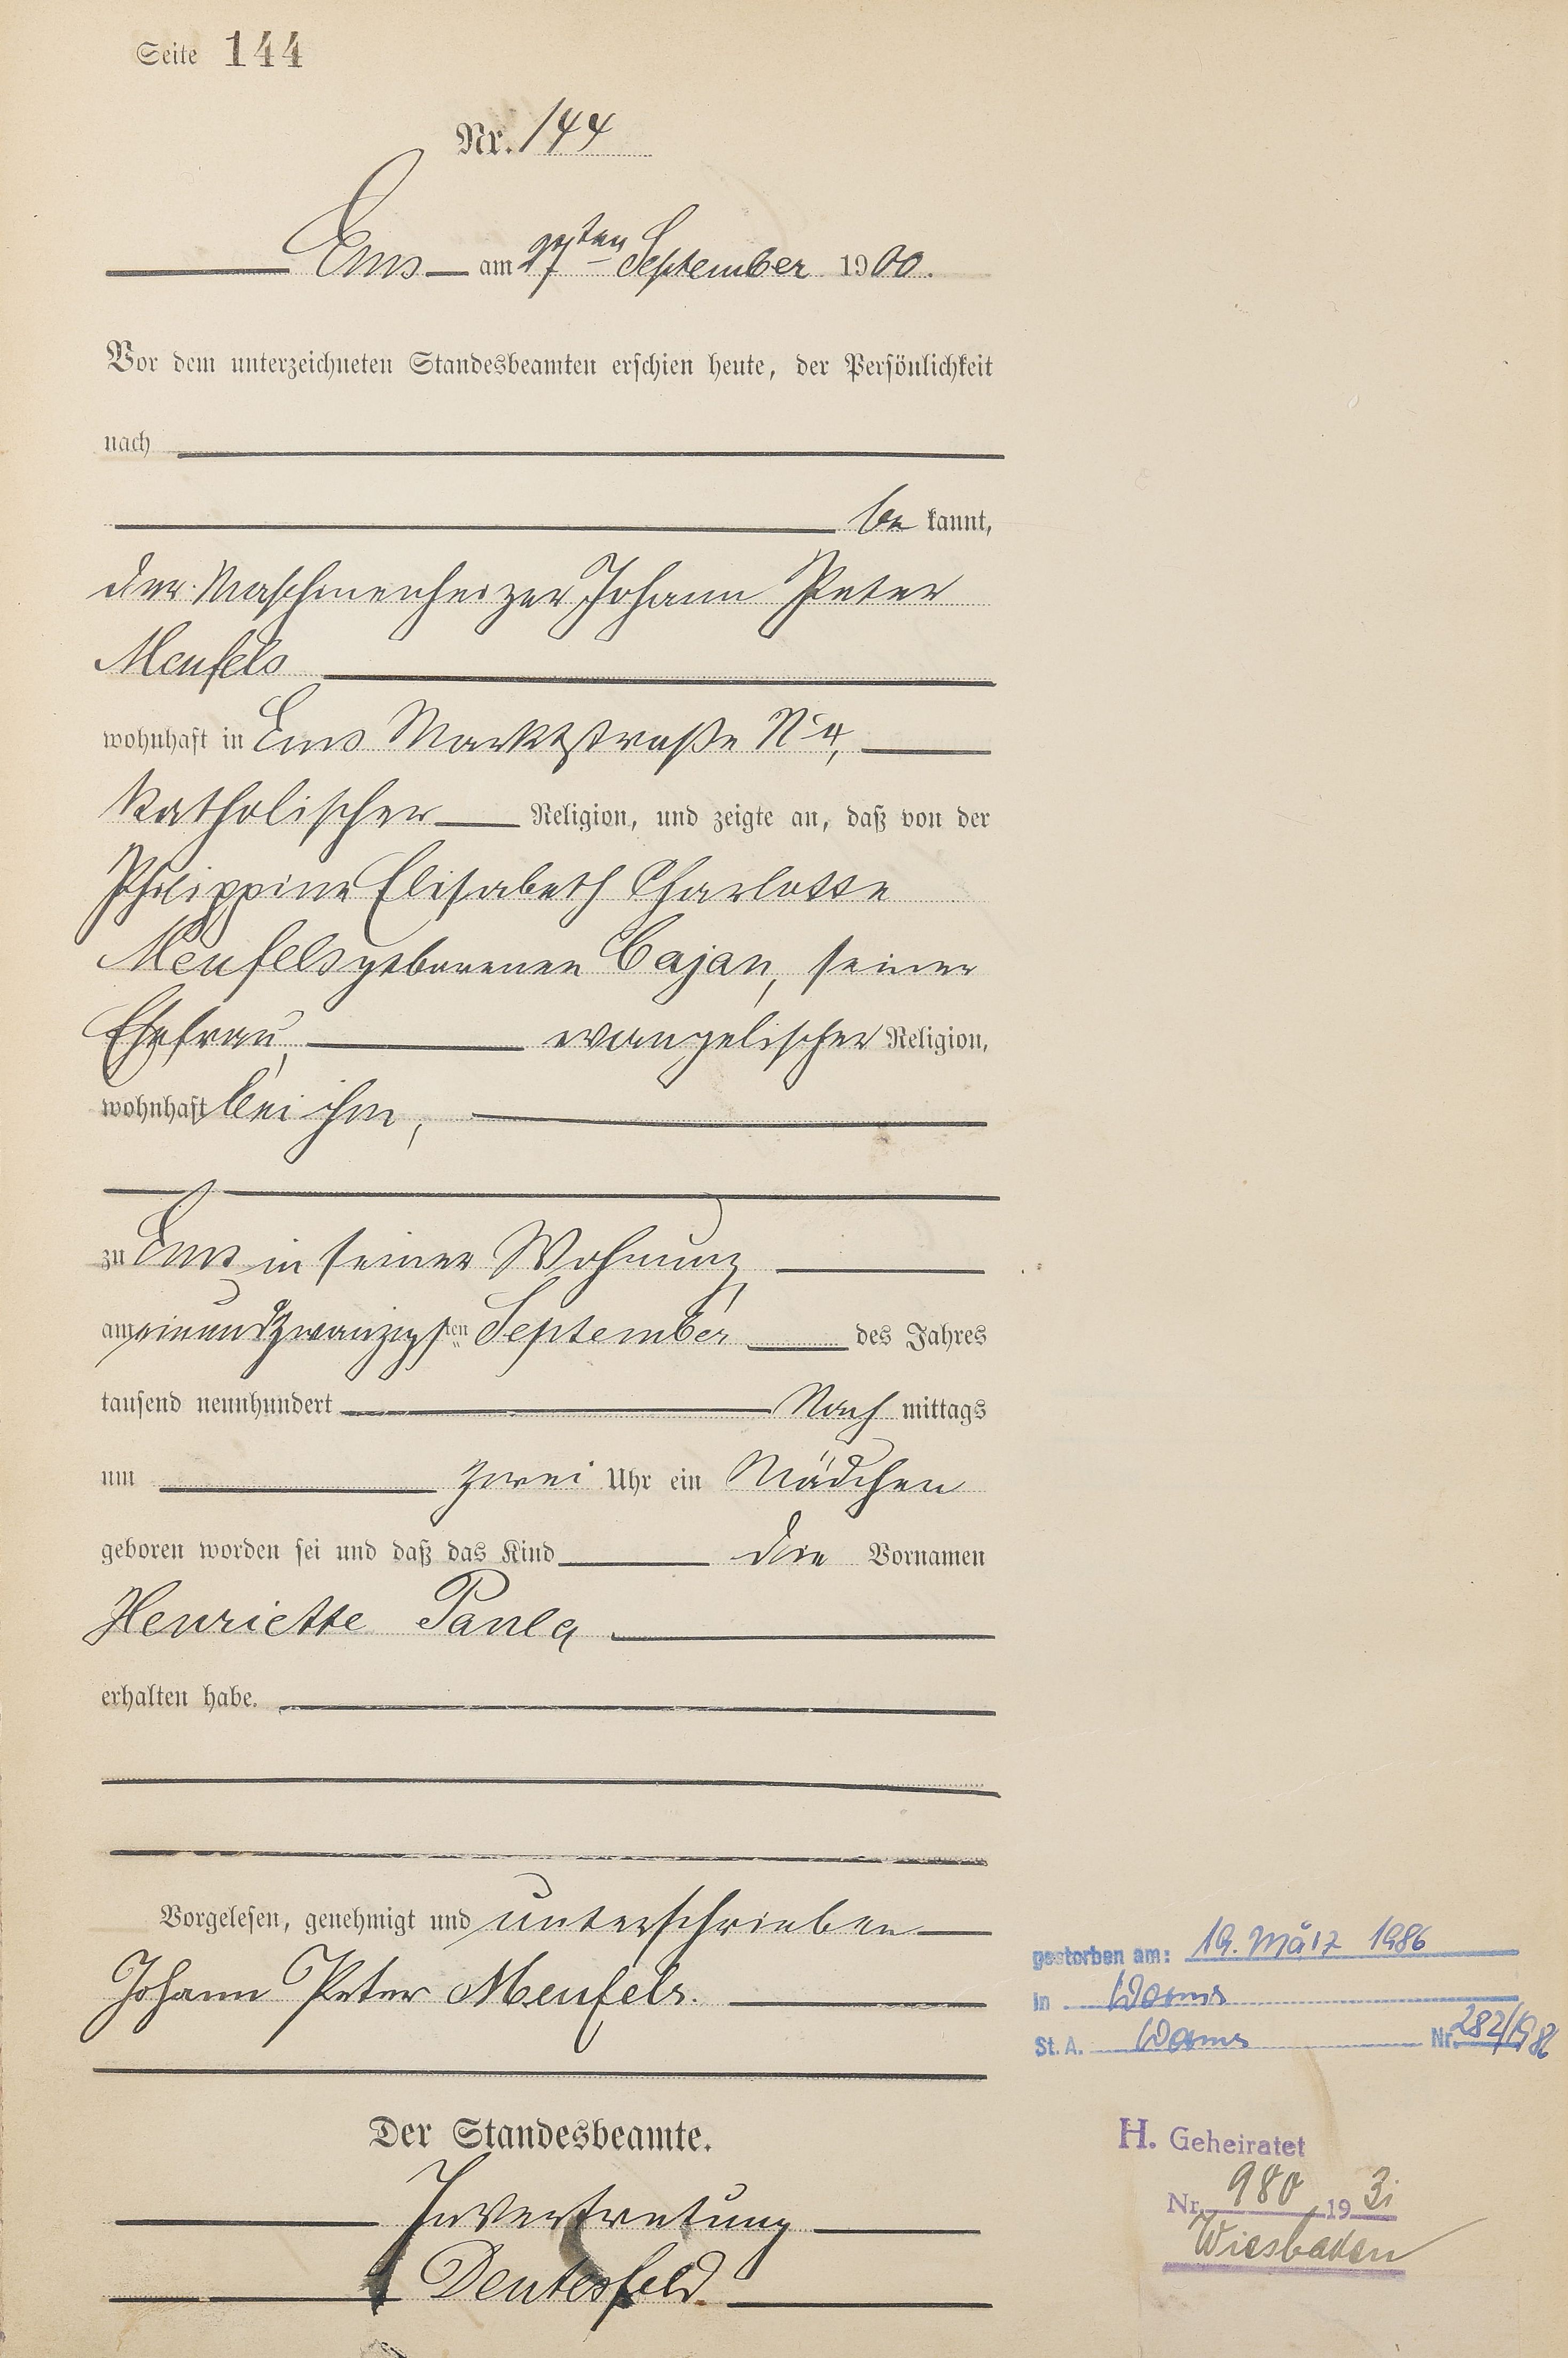 Seite 144
Nr. 144
Ems am 27ten September 1900.
Vor dem unterzeichneten Standesbeamten erschien heute, der Persönlichkeit
nach
be kannt,
der Maschinenheizer Johann Peter
Menfels
wohnhaft in Ems Marktstraße No 4,
katholischer Religion, und zeigte an, daß von der
Philippine Elisabeth Charlotte
Menfels geborenen Cajan, seiner
Ehefrau, evangelischer Religion,
wohnhaft bei ihm,
zu Ems in seiner Wohnung,
am einundzwanzigsten September des Jahres
tausend neunhundert Nach mittags
um zwei Uhr ein Mädchen
geboren worden sei und daß das Kind die Vornamen
Henriette Paula
erhalten habe.
Vorgelesen, genehmigt und unterschrieben
Johann Peter Menfels.
Der Standesbeamte.
In Vertretung
Deutesfeld.
gestorben am: 19. März 1986
in Worms
St. A. Worms Nr. 282/1986
H. Geheiratet
Nr. 980 1931
Wiesbaden